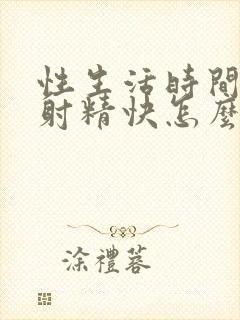 性生活時間
射精快怎麼
涂禮蓉